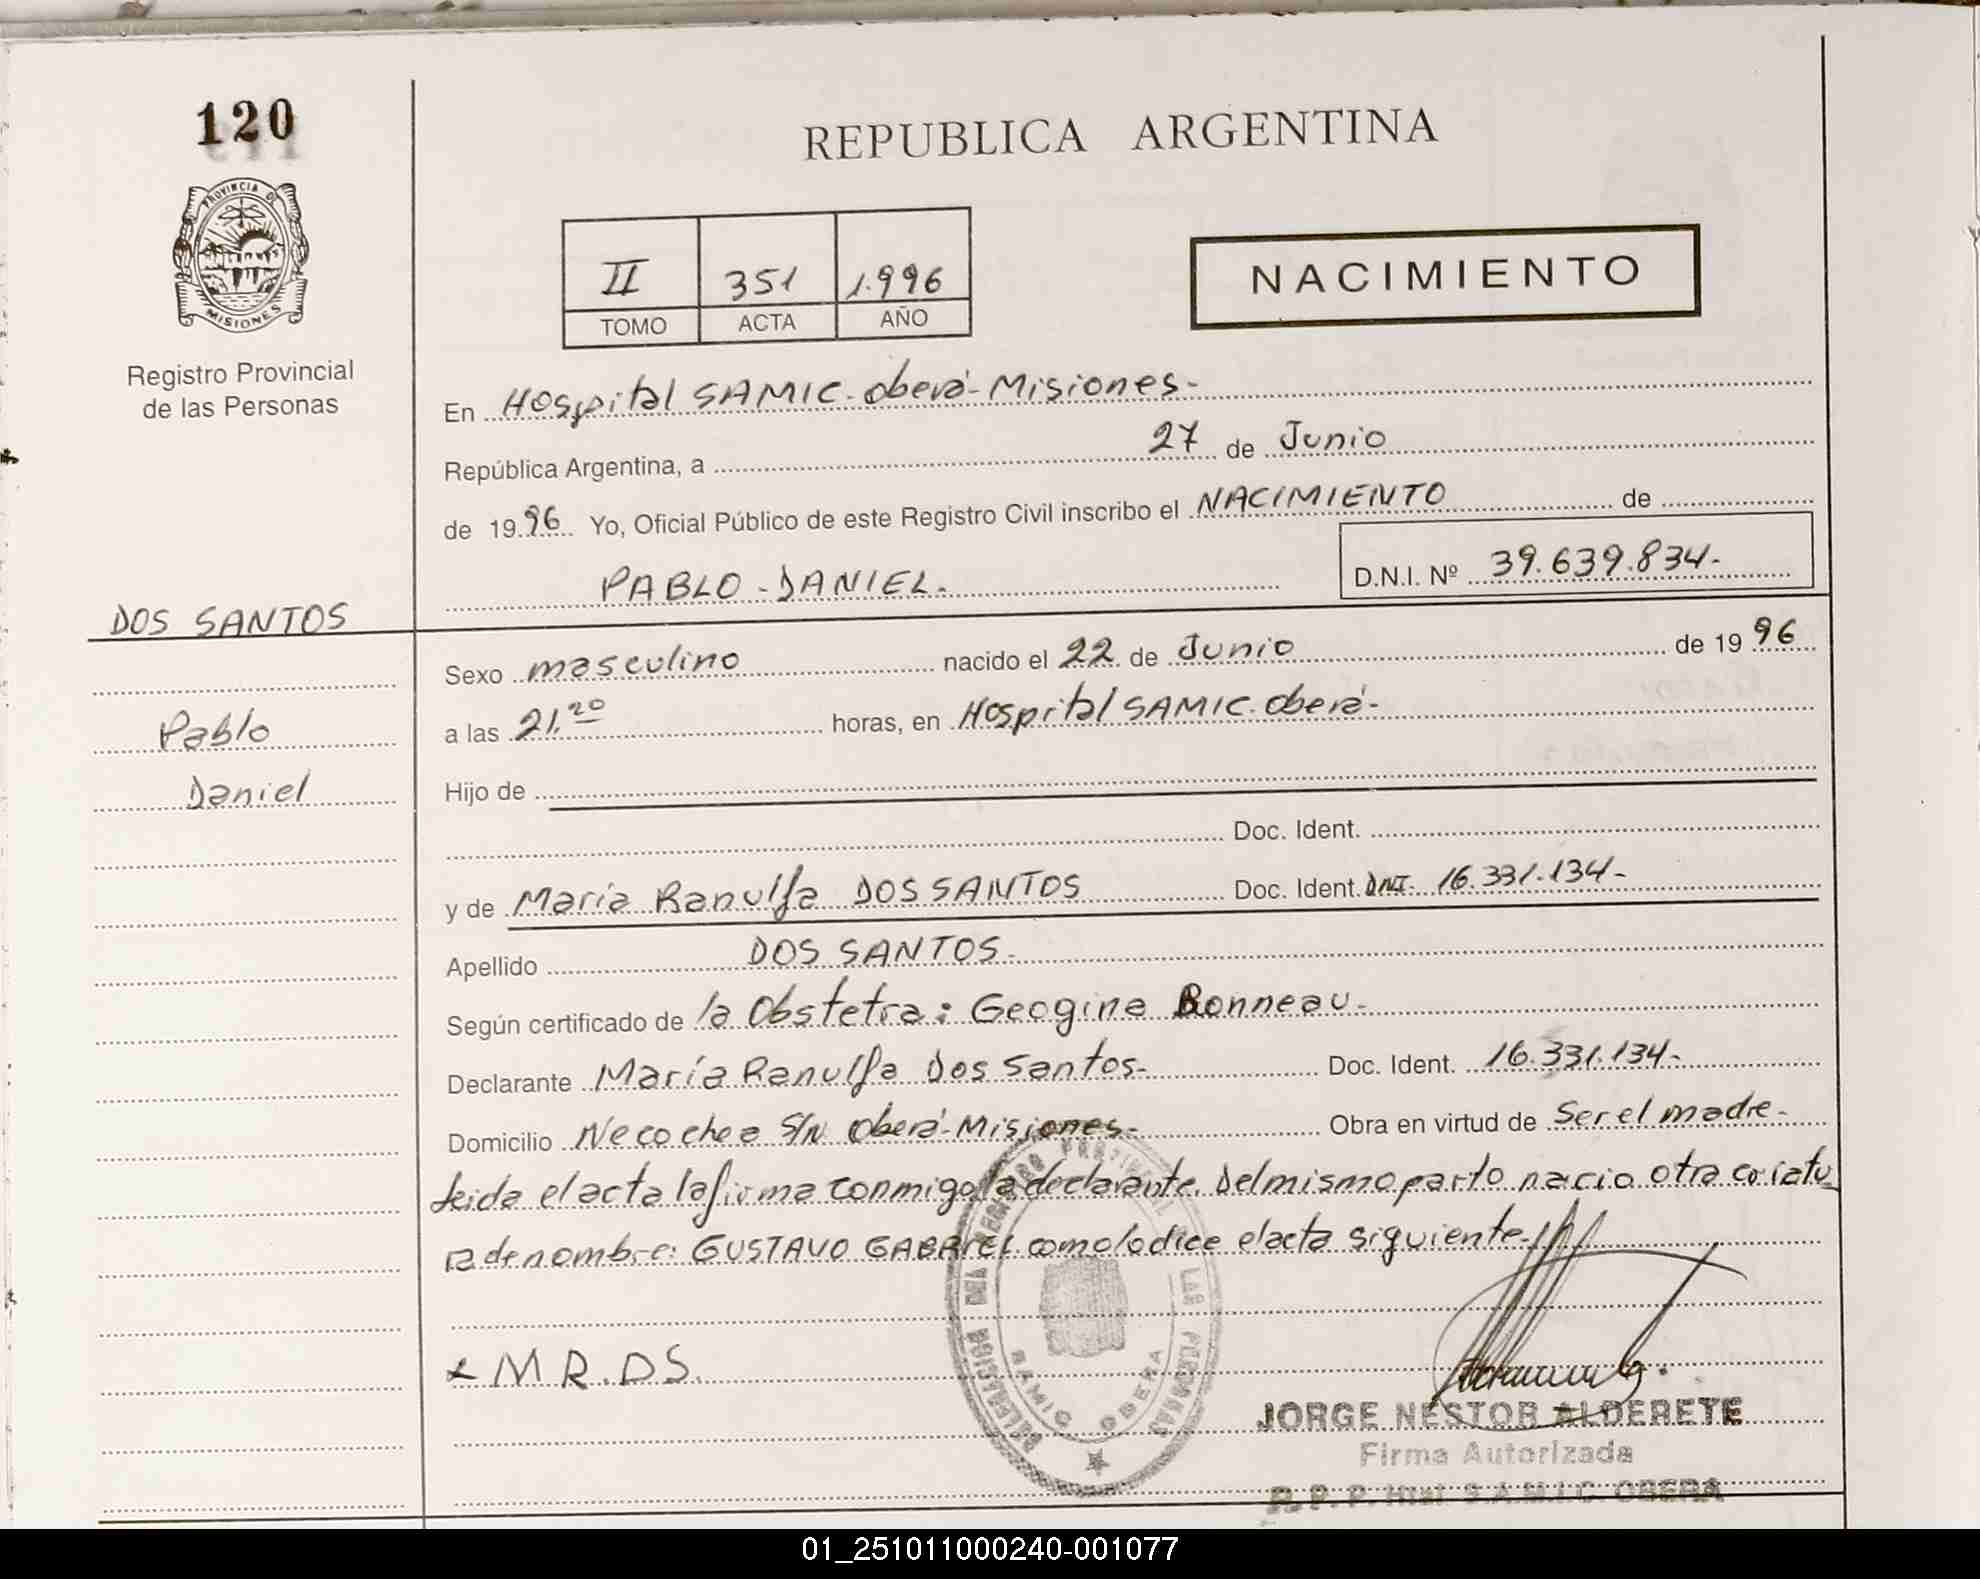 120
REPUBLICA ARGENTINA
PROVINCIA DE
MISIONES
Registro Provincial
de las Personas
II 351 1.996
TOMO ACTA AÑO
NACIMIENTO
En Hospital SAMIC. Oberá-Misiones-
República Argentina, a 27 de Junio
de 1996 Yo, Oficial Público de este Registro Civil inscribo el NACIMIENTO de
PABLO-DANIEL. D.N.I. Nº 39.639.834-
DOS SANTOS
Pablo
Daniel
Sexo masculino nacido el 22 de Junio de 1996
a las 21.20 horas, en Hospital SAMIC. Oberá-
Hijo de
Doc. Ident.
y de María Ranulfa DOS SANTOS Doc. Ident. DNI. 16.331.134-
Apellido DOS SANTOS-
Según certificado de la Obstetra: Geogina Bonneau-
Declarante María Ranulfa Dos Santos- Doc. Ident. 16.331.134-
Domicilio Necochea S/N Oberá-Misiones- Obra en virtud de Ser el madre-
leida el acta la firma conmigo la declarante. Del mismo parto nacio otra criatu
ra de nombre: GUSTAVO GABRIEL como lo dice el acta siguiente.
M R. D S.
SAMIC OBERA
JORGE NESTOR ALDERETE
Firma Autorizada
R. P. P. Htal S.A.M.I.C. OBERA
01_251011000240-001077